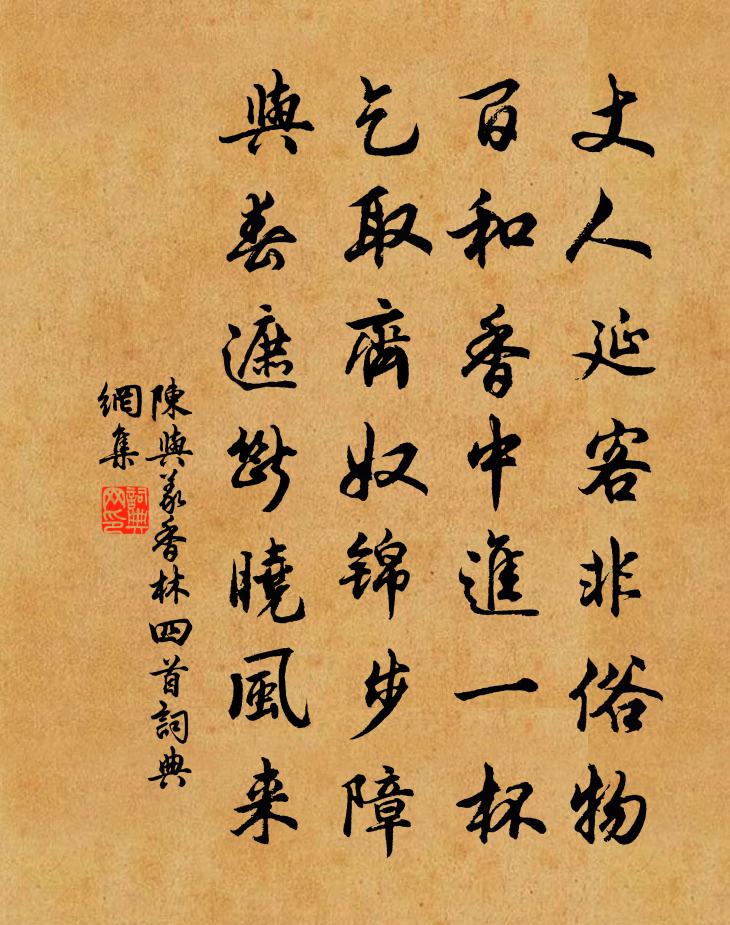 丈人延客非俗物
百和香中進一杯
乞取齊奴錦步障
與春遮斷曉風来
陳與義香林四首詞典
網集
詞典
网印